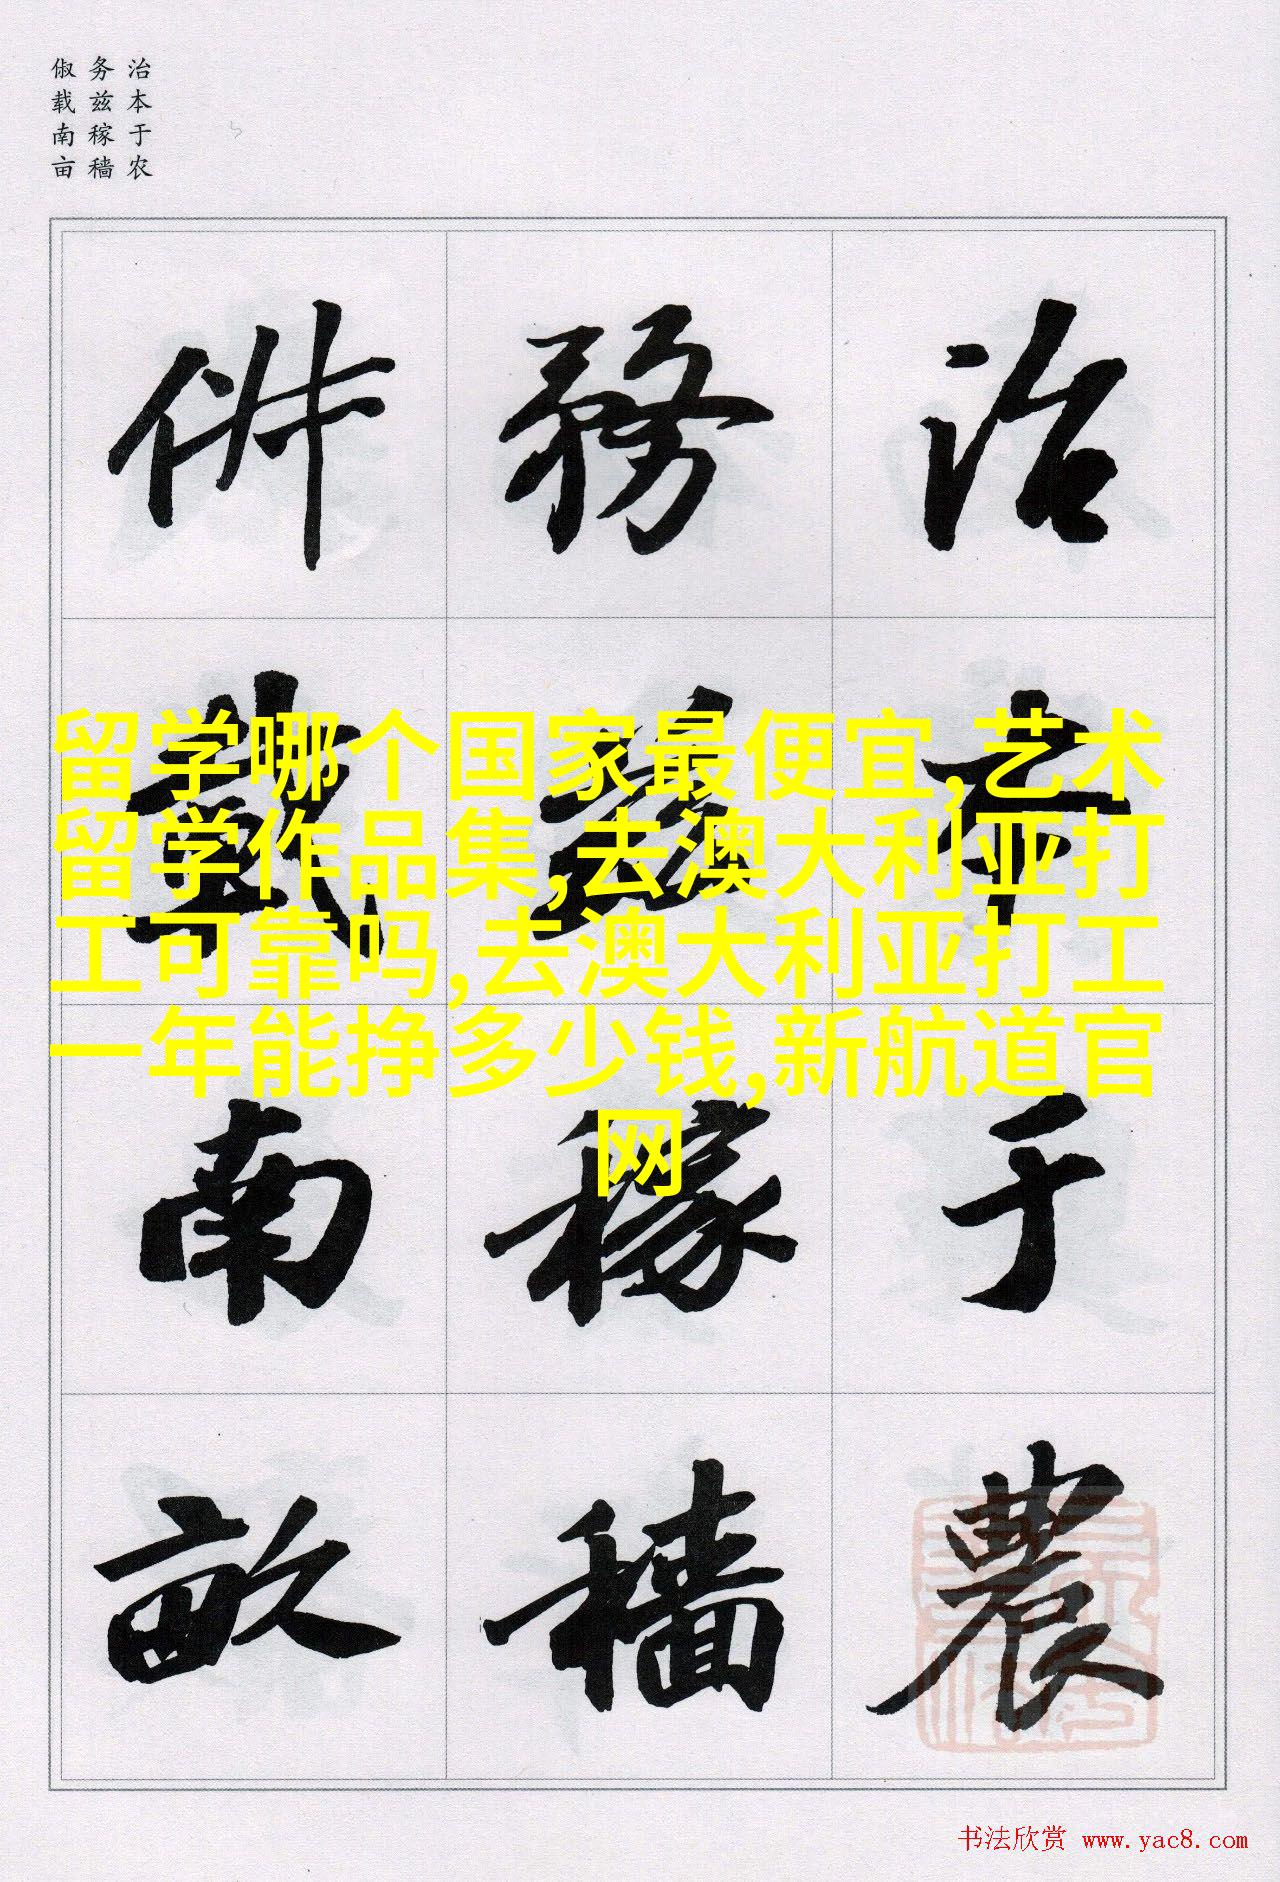 治本于农
务兹稼穑
俶载南亩
治本于農
務兹稼穑
俶載南畝
留学哪个国家最便宜,艺术
留学作品集,去澳大利亚打
工可靠吗,去澳大利亚打工
一年能挣多少钱,新航道官
网
书法欣赏 www.yac8.com